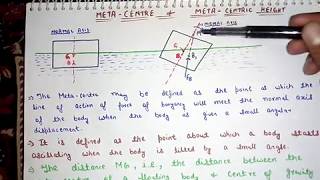 META-CENTRE & META-CENTRIC HEIGHT
NORMAL AXIS
NORMAL AXIS
G
G
B
B
B₁
FB
The Meta-centre may be defined as the point at which the
line of action of force of buoyancy will meet the normal axis
of the body when the body is given a small angular
displacement.
It is defined as the point about which a body starts
oscillating when the body is tilted by a small angle.
The distance MG, i.e., the distance between the
of a floating body & centre of gravity